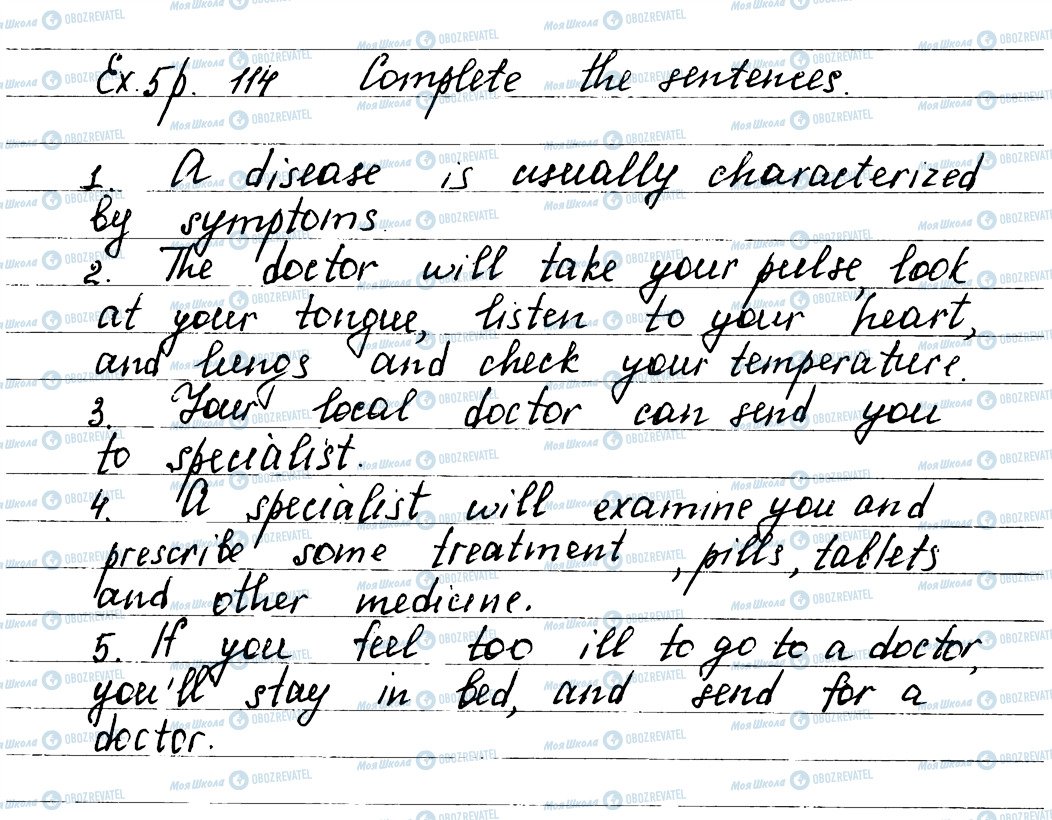 Ex. 5 p. 114 Complete the sentences.
1. A disease is usually characterized
by symptoms.
2. The doctor will take your pulse, look
at your tongue, listen to your heart,
and lungs and check your temperature.
3. Your local doctor can send you
to specialist.
4. A specialist will examine you and
prescribe some treatment, pills, tablets
and other medicine.
5. If you feel too ill to go to a doctor,
you'll stay in bed, and send for a
doctor.
Моя Школа OBOZREVATEL